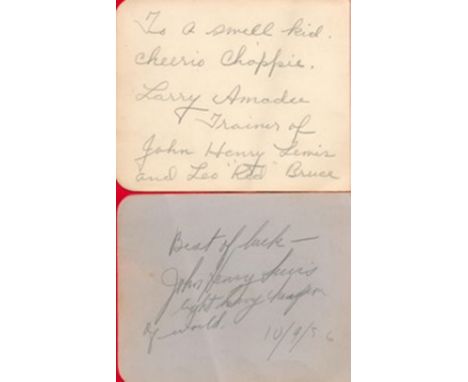 To a swell kid.
Cheerio Chappie.
Larry Amadee
Trainer of
John Henry Lewis
and Leo "Red" Bruce
Best of luck —
John Henry Lewis
light heavy champion
of world.
10/9/36